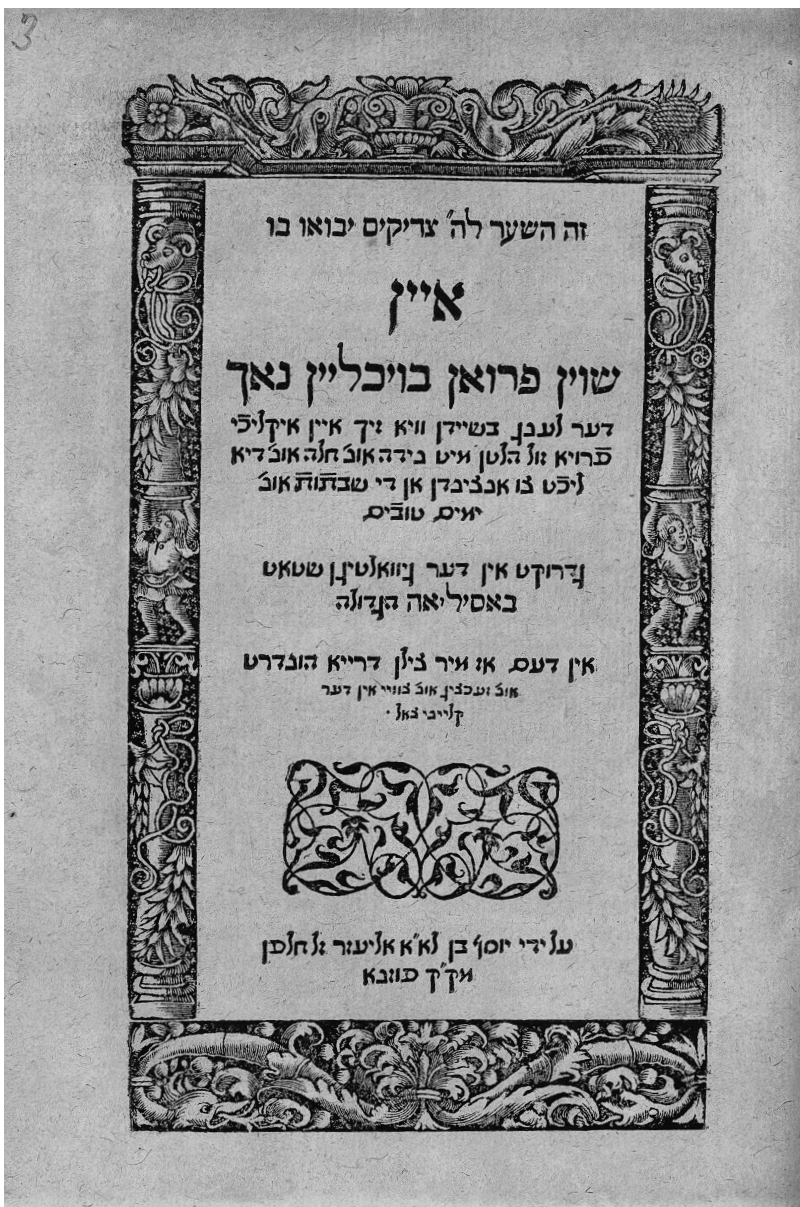 3
זה השער לה״ צדיקים יבואו בו
איין
שוין פרואן בויכליין נאך
דער לענג בשיידן וויא זיך איין איקליכֿי
פֿרויא זול הלטן מיט נידה אונ׳ חלה אונ׳ דיא
ליכֿט צו אנצינדן אן די שבתות אונ׳
ימים טובים
גדרוקט אין דער גיוואלטיגן שטאט
באסיליאה הגדולה
אין דעם אז מיר צילן דרייא הונדרט
אונ׳ זעכצין אונ׳ צוויי אין דער
קלייני צאל.
על ידי יוסף בן לא״א אליעזר ז״ל חלפן
מק״ק פוזנא